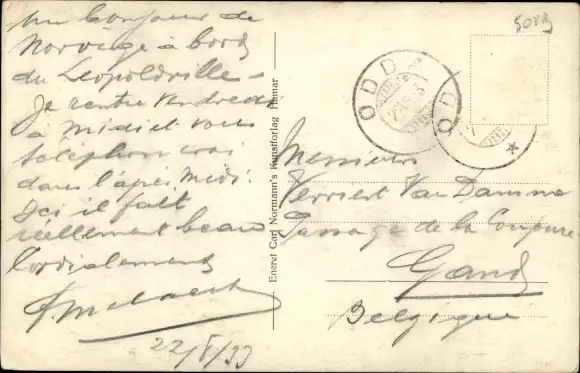 Un bonjour de
Norvège à bord
du Léopoldville –
Je rentre vendredi
à midi et vous
téléphonerai
dans l'après midi.
Ici il fait
réellement beau
Cordialement
22/8/33
Eneret Carl Normann's Kunstforlag Hamar
ODDA
ODD
Messieurs
Verriest Van Damme
Passage de la Coupure
Gand
Belgique